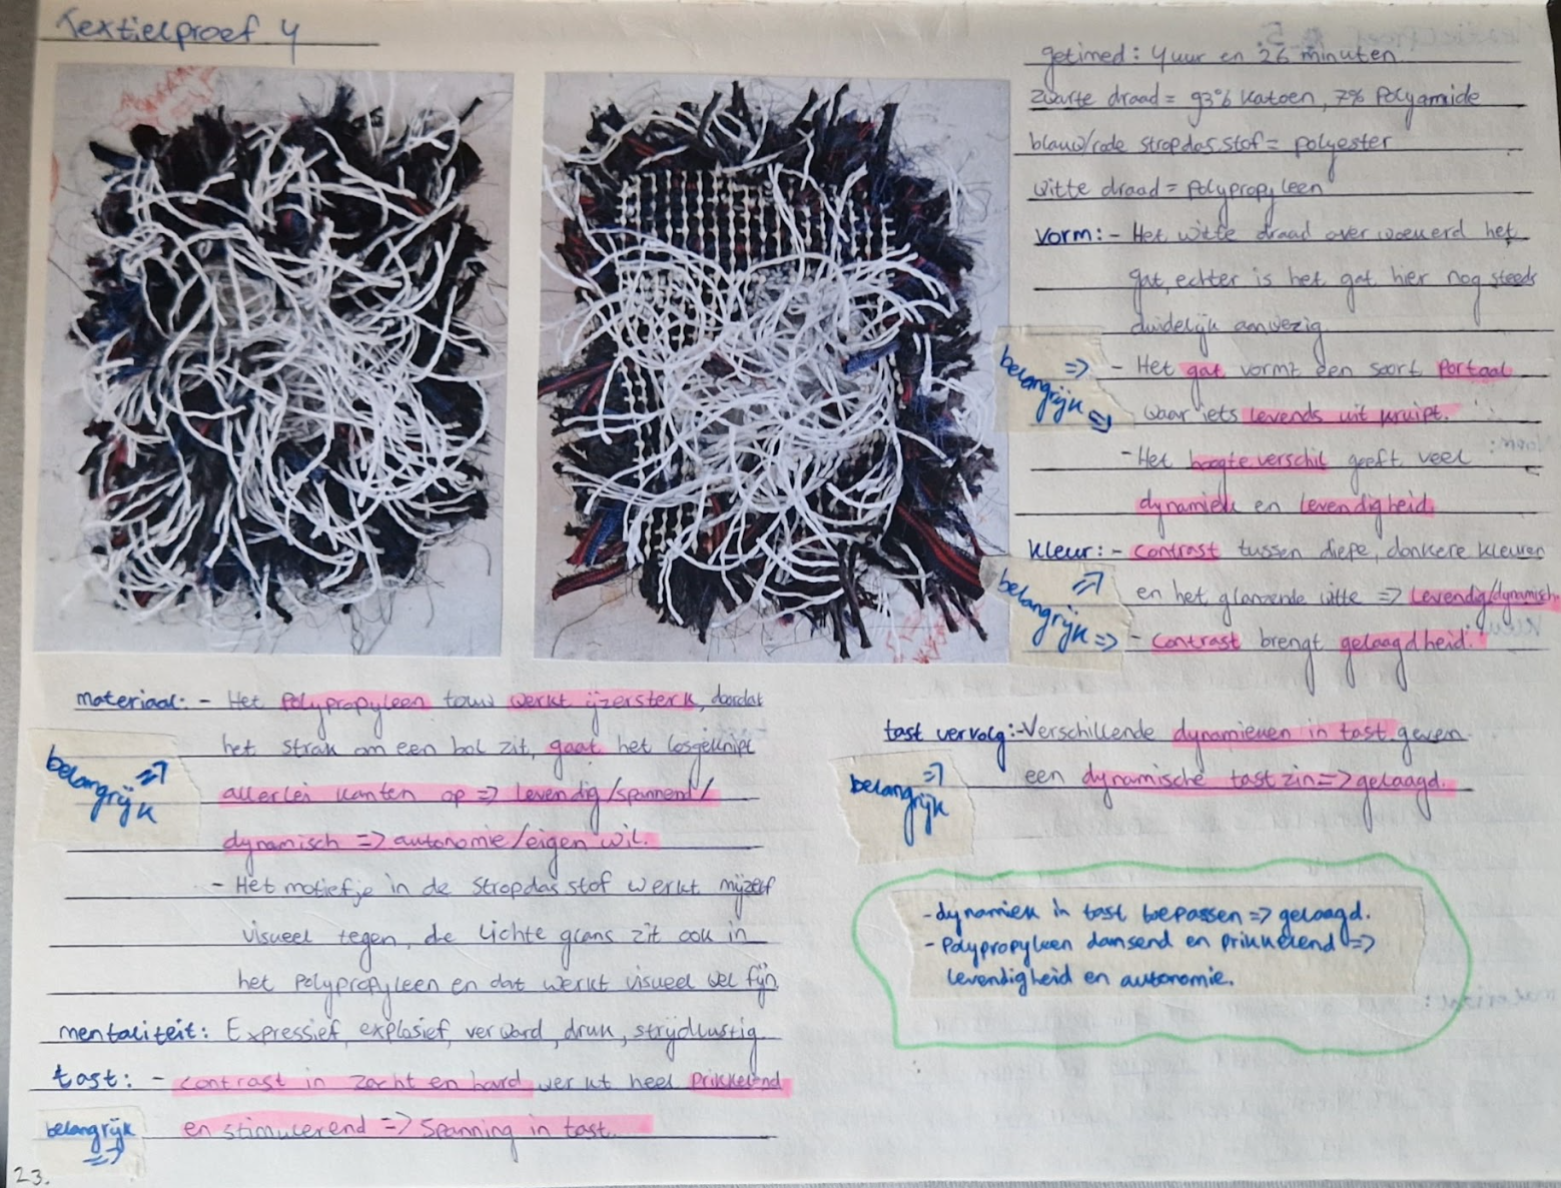 Textielproef 4
getimed: 4 uur en 26 minuten
zwarte draad = 93% katoen, 7% Polyamide
blauw/rode stropdas stof = polyester
witte draad = polypropyleen
vorm: - Het witte draad overwoekerd het
gat, echter is het gat hier nog steeds
duidelijk aanwezig
belangrijk => - Het gat vormt een soort portaal
=> waar iets levends uit kruipt.
- Het hoogteverschil geeft veel
dynamiek en levendigheid.
kleur: - contrast tussen diepe, donkere kleuren
belangrijk => en het glanzende witte => Levendig/dynamisch
=> - contrast brengt gelaagdheid.
materiaal: - Het Polypropyleen touw werkt ijzersterk, doordat
het strak om een bol zit, gaat het losgeknipt
belangrijk => allerlei kanten op => levendig/spannend/
dynamisch => autonomie/eigen wil.
- Het motiefje in de stropdas stof werkt mijzelf
visueel tegen, de lichte glans zit ook in
het polypropyleen en dat werkt visueel wel fijn
mentaliteit: Expressief, explosief, verward, druk, strijdlustig
tast: - contrast in zacht en hard werkt heel prikkelend
belangrijk => en stimulerend => Spanning in tast.
tast vervolg: - Verschillende dynamieken in tast geven
belangrijk => een dynamische tast zin => gelaagd.
- dynamiek in tast toepassen => gelaagd.
- Polypropyleen dansend en prikkelend =>
levendigheid en autonomie.
23.